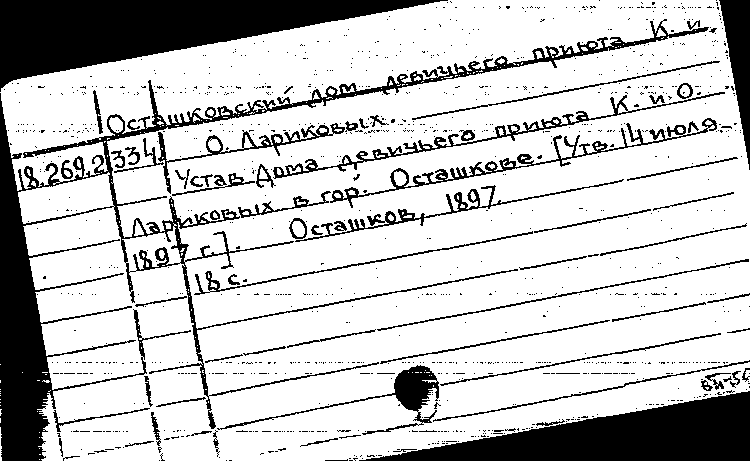 Осташковский дом девичьего приюта К. и
О. Лариковых.
18.269.2.334.
Устав Дома девичьего приюта К. и О.
Лариковых в гор. Осташкове. [Утв. 14 июля
1897 г.]. Осташков, 1897.
18 с.